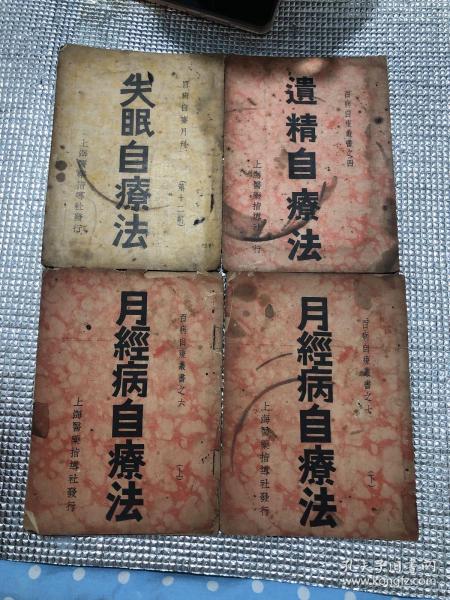 失眠自療法
百病自療月刊
第十二期
上海醫藥指導社發行
遺精自療法
百病自療叢書之四
上海醫藥指導社發行
月經病自療法
百病自療叢書之六
(上)
上海醫藥指導社發行
月經病自療法
百病自療叢書之七
(下)
上海醫藥指導社發行
孔夫子旧书网
www.kongfz.com